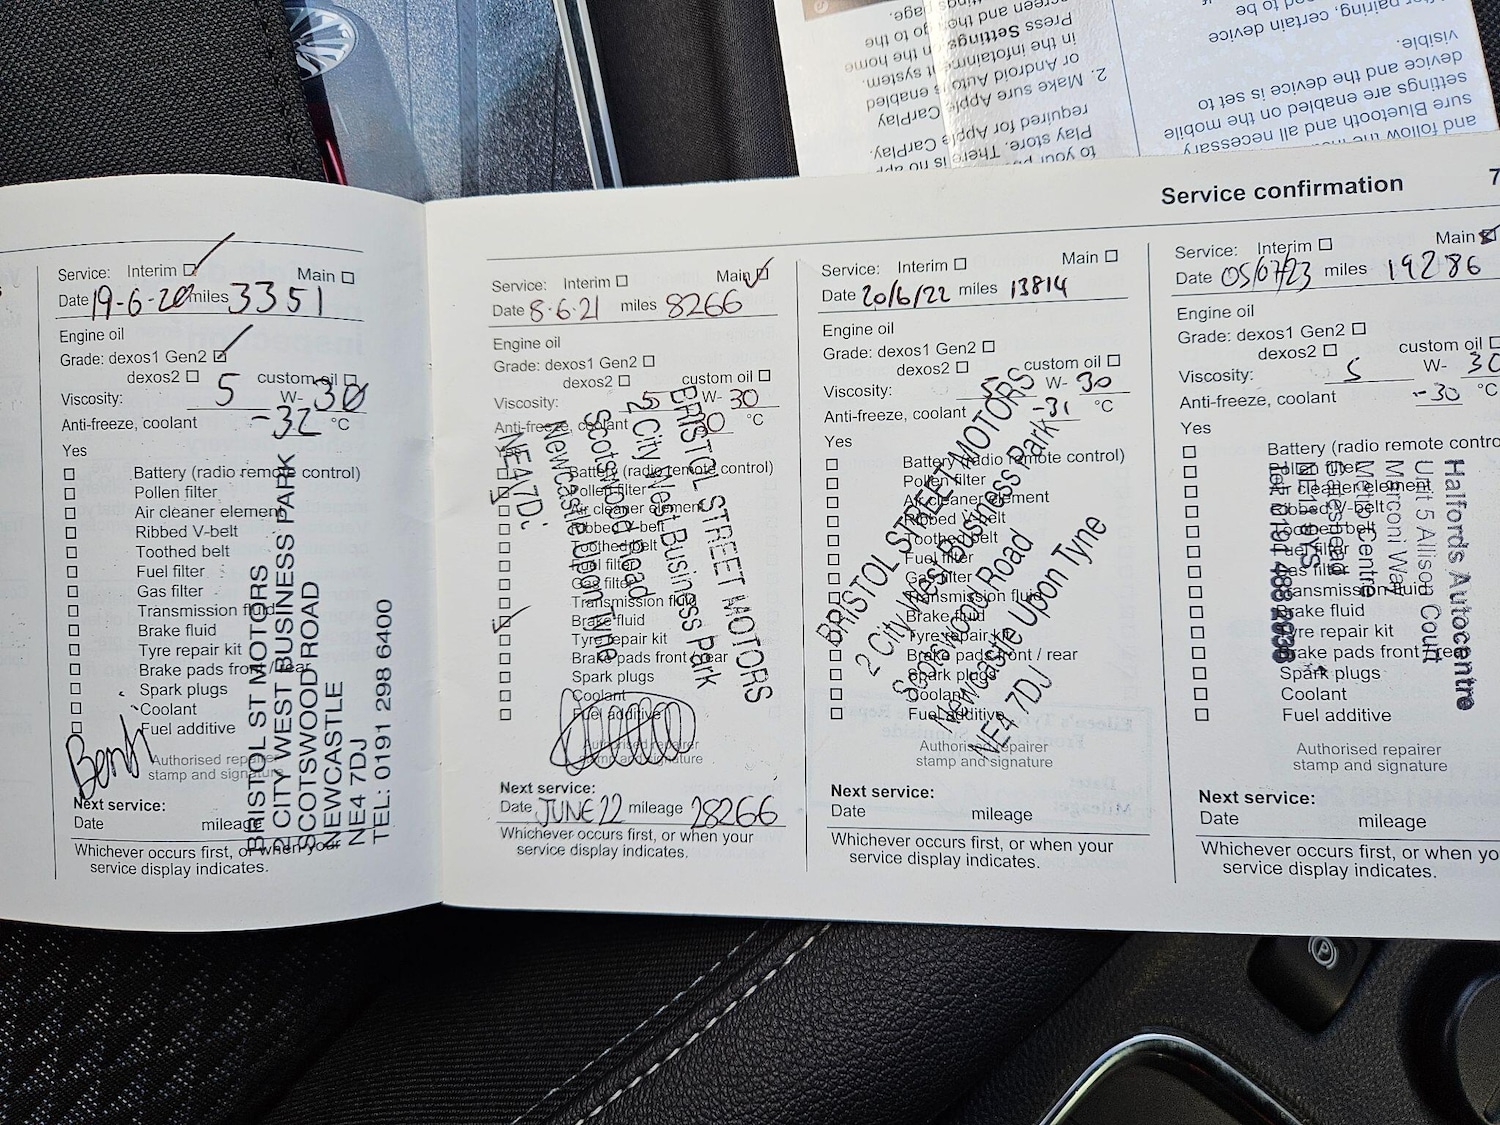 Service confirmation 7
Service: Interim Main
Date 19-6-20 miles 3351
Engine oil
Grade: dexos1 Gen2
dexos2 custom oil
Viscosity: 5 W- 30
Anti-freeze, coolant -32 °C
Yes
Battery (radio remote control)
Pollen filter
Air cleaner element
Ribbed V-belt
Toothed belt
Fuel filter
Gas filter
Transmission fluid
Brake fluid
Tyre repair kit
Brake pads front / rear
Spark plugs
Coolant
Fuel additive
Authorised repairer
stamp and signature
BRISTOL ST MOTORS
2 CITY WEST BUSINESS PARK
SCOTSWOOD ROAD
NEWCASTLE
NE4 7DJ
TEL: 0191 298 6400
Next service:
Date mileage
Whichever occurs first, or when your
service display indicates.
Service: Interim Main
Date 8.6.21 miles 8266
Engine oil
Grade: dexos1 Gen2
dexos2 custom oil
Viscosity: 5 W- 30
Anti-freeze, coolant 30 °C
Battery (radio remote control)
Pollen filter
Air cleaner element
Ribbed V-belt
Toothed belt
Fuel filter
Gas filter
Transmission fluid
Brake fluid
Tyre repair kit
Brake pads front / rear
Spark plugs
Coolant
Fuel additive
Authorised repairer
stamp and signature
BRISTOL STREET MOTORS
2 City West Business Park
Scotswood Road
Newcastle Upon Tyne
NE4 7DJ
Next service:
Date JUNE 22 mileage 28266
Whichever occurs first, or when your
service display indicates.
Service: Interim Main
Date 20/6/22 miles 13814
Engine oil
Grade: dexos1 Gen2
dexos2 custom oil
Viscosity: 5 W- 30
Anti-freeze, coolant -31 °C
Yes
Battery (radio remote control)
Pollen filter
Air cleaner element
Ribbed V-belt
Toothed belt
Fuel filter
Gas filter
Transmission fluid
Brake fluid
Tyre repair kit
Brake pads front / rear
Spark plugs
Coolant
Fuel additive
Authorised repairer
stamp and signature
BRISTOL STREET MOTORS
2 City West Business Park
Scotswood Road
Newcastle Upon Tyne
NE4 7DJ
Next service:
Date mileage
Whichever occurs first, or when your
service display indicates.
Service: Interim Main
Date 05/07/23 miles 19286
Engine oil
Grade: dexos1 Gen2
dexos2 custom oil
Viscosity: 5 W- 30
Anti-freeze, coolant -30 °C
Yes
Battery (radio remote
Pollen filter
Air cleaner element
Ribbed V-belt
Toothed belt
Fuel filter
Gas filter
Transmission fluid
Brake fluid
Tyre repair kit
Brake pads front /
Spark plugs
Coolant
Fuel additive
Authorised repairer
stamp and signature
Halfords Autocentre
Unit 5 Allison Court
Marconi Way
Metro Centre
Gateshead
Next service:
Date mileage
Whichever occurs first, or when
service display indicates.
to your
Play store. There is no app
required for Apple CarPlay.
2. Make sure Apple CarPlay
or Android Auto is enabled
in the infotainment system.
Press Settings on the home
screen and then go to the
and follow the
sure Bluetooth and all necessary
settings are enabled on the mobile
device and the device is set to
visible.
After pairing, certain device